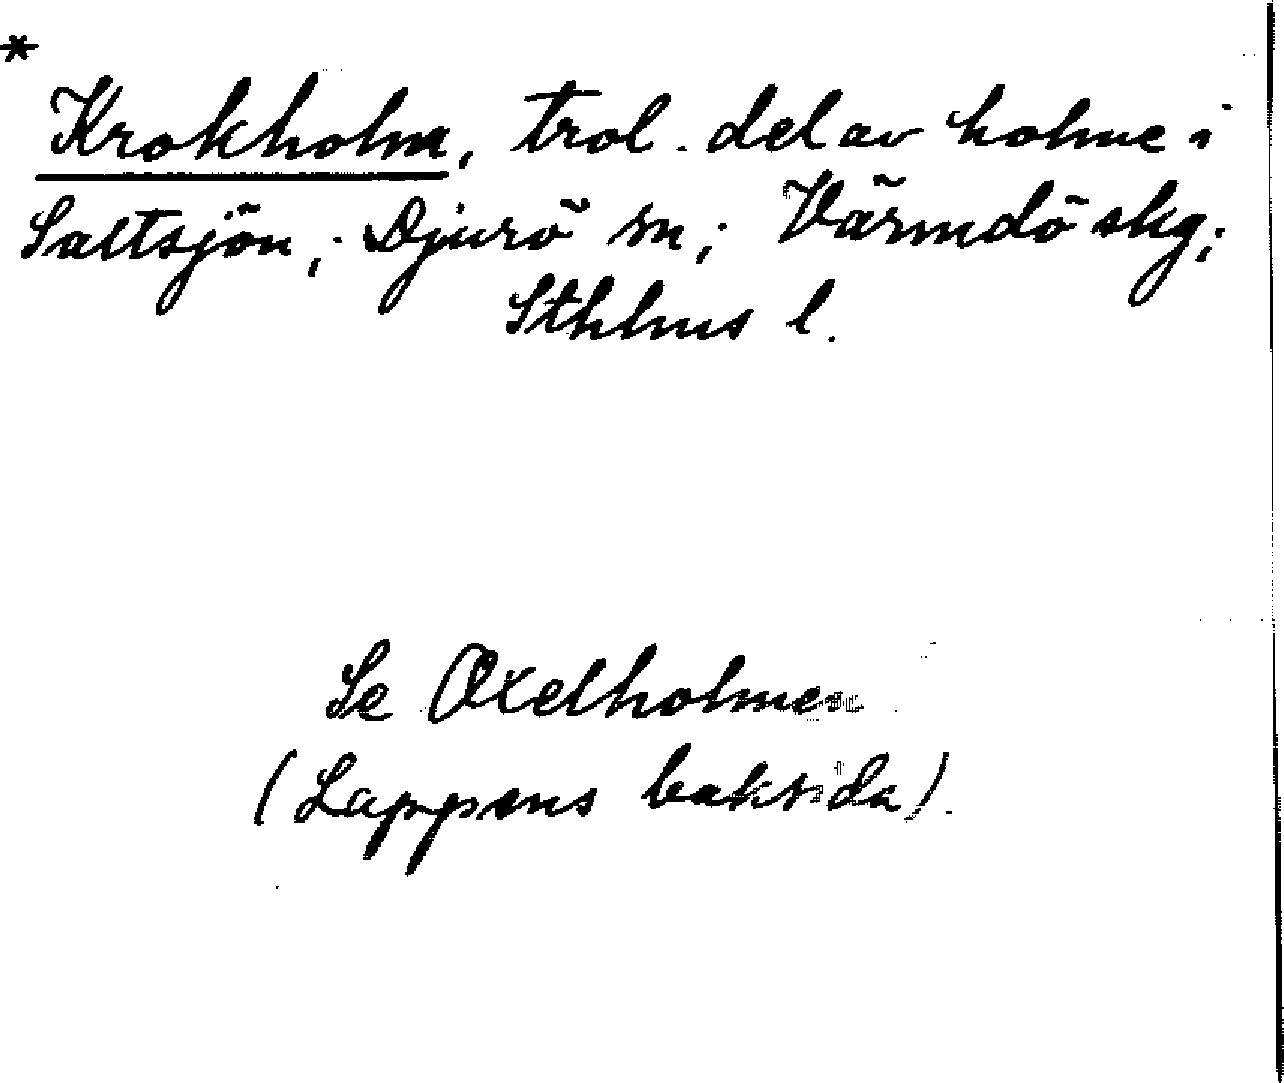 *
Krokholm, trol. del av holme i
Saltsjön; Djurö sn; Värmdö skg;
Sthlms l.
Se Oxelholmen
(Lappens baksida).